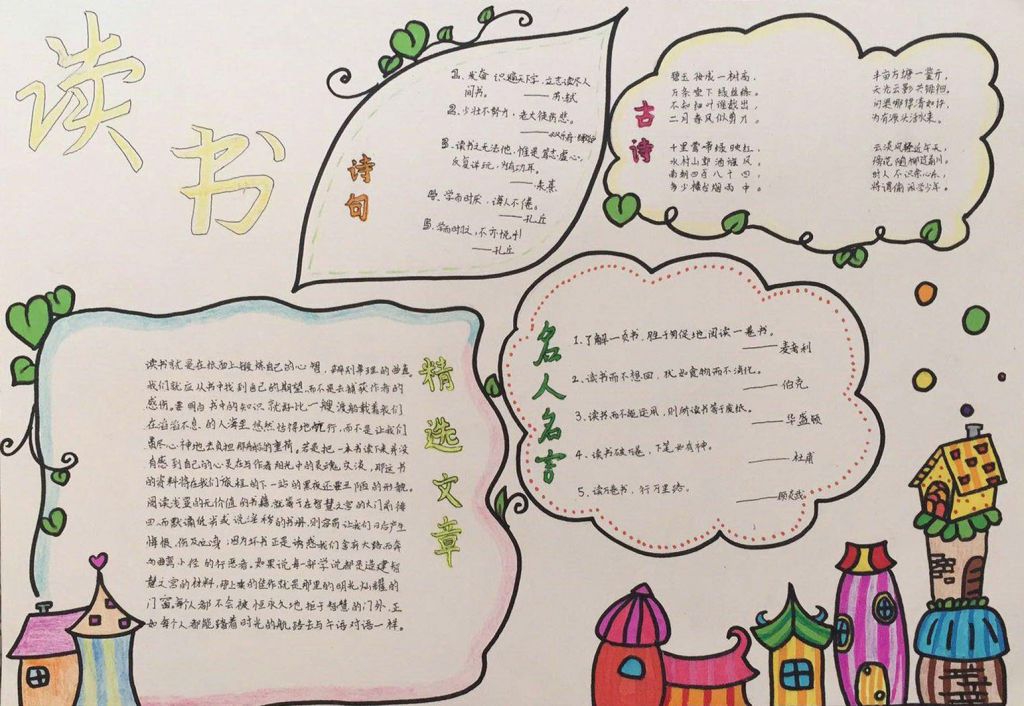 读书
诗句
1、发奋识遍天下字，立志读尽人
间书。
——苏轼
2、少壮不努力，老大徒伤悲。
3、读书之无法他，惟是笃志虚心，
反复详玩，为有功耳。
——朱熹
4、学而时厌，诲人不倦。
——孔丘
5、学而时习之，不亦悦乎！
——孔丘
古诗
碧玉妆成一树高，
万条垂下绿丝绦。
不知细叶谁裁出，
二月春风似剪刀。
半亩方塘一鉴开，
天光云影共徘徊。
问渠哪得清如许，
为有源头活水来。
千里莺啼绿映红，
水村山郭酒旗风。
南朝四百八十四，
多少楼台烟雨中。
云淡风轻近午天，
傍花随柳过前川。
时人不识余心乐，
将谓偷闲学少年。
精选文章
读书就是在纸面上锻炼自己的心
我们就应从书中找到自己的期望，而不是去捕获作者的
感伤。要明白书中的知识就好比一艘渡船载着我们
在滔滔不息的人海里悠然恬得地航行，而不是让我们
费尽心神地去负担那船的重荷。若是把一本书读下来并没
有感到自己的心是在与作者阳光中的灵魂交谈，那这书
的资料将在我们旅程的下一站的黑夜还要丑陋的形貌。
阅读浅显的无价值的书籍就等于在智慧之宫的大门前徘
徊，而默诵低劣或说淫秽的书册，则容需让我们日后产生
悔恨，伤及心身；因为坏书正是诱惑我们舍弃大路而奔
向曲弯小径的行恶者。如果说每一部学说都是造建智
慧之宫的材料，
门窗。每个人都不会被恒永久地拒于智慧的门外，正
如每个人都能踏着时光的航路去与午语对语一样。
名人名言
1、了解一页书，胜于匆促地阅读一卷书。
——麦考利
2、读书而不想回，犹如食物而不消化。
——伯克
3、读书而不能运用，则所读书等于废纸。
——华盛顿
4、读书破万卷，下笔如有神。
——杜甫
5、读万卷书，行万里路。